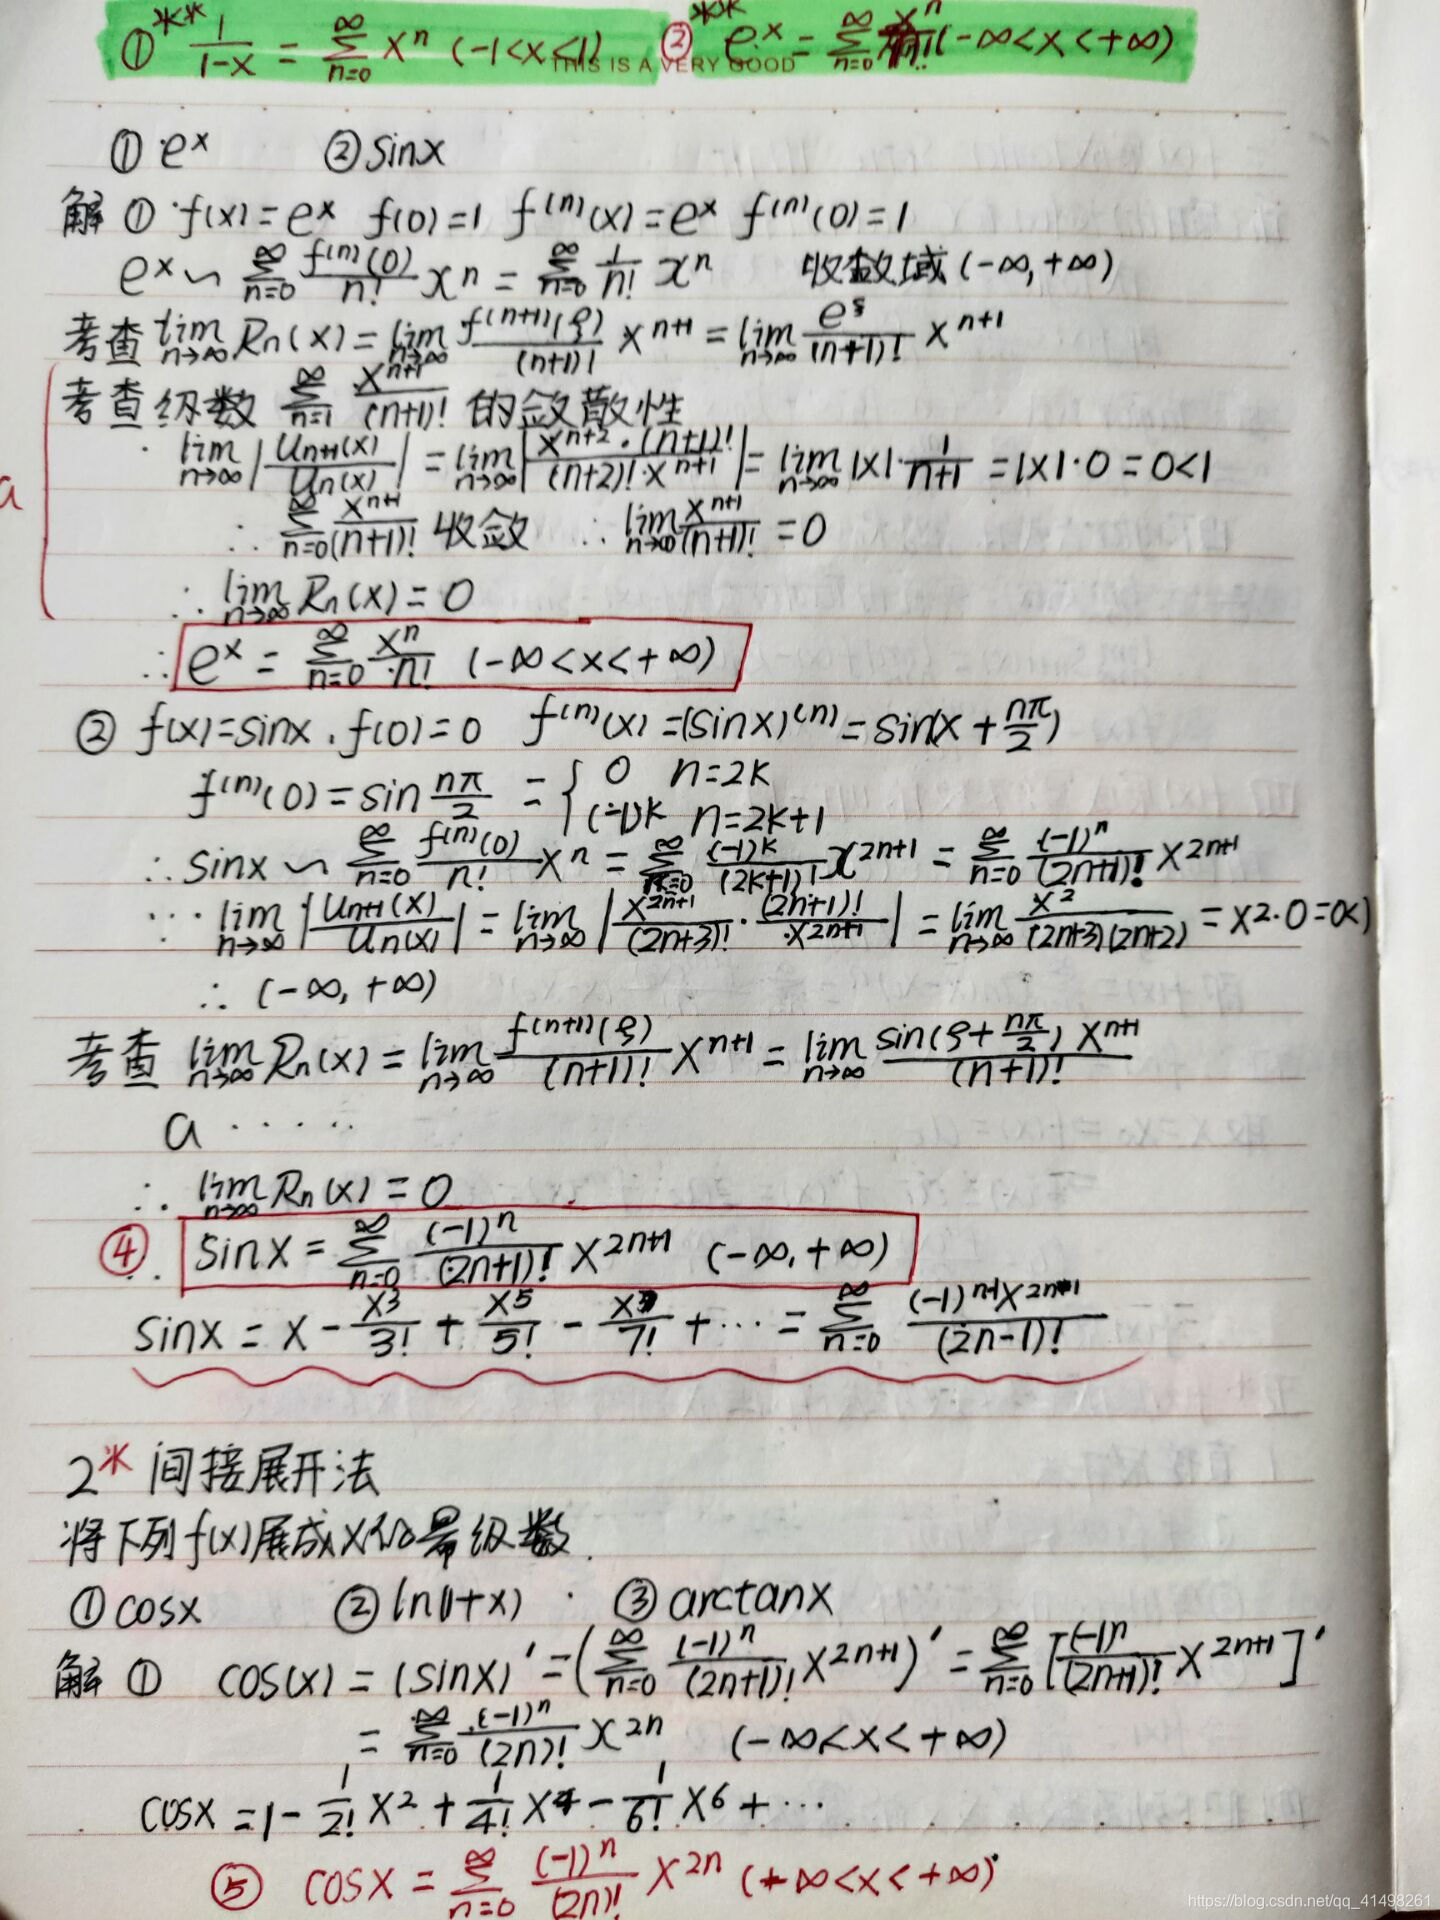 ①** 1/(1-x) = ∑_{n=0}^{∞} x^n (-1<x<1) ②** e^x = ∑_{n=0}^{∞} x^n/n! (-∞<x<+∞)
THIS IS A VERY GOOD
① e^x ② sinx
解 ① f(x)=e^x f(0)=1 f^(n)(x)=e^x f^(n)(0)=1
e^x ∽ ∑_{n=0}^{∞} f^(n)(0)/n! x^n = ∑_{n=0}^{∞} 1/n! x^n 收敛域(-∞,+∞)
考查 lim_{n→∞} Rn(x) = lim_{n→∞} f^(n+1)(ξ)/(n+1)! x^{n+1} = lim_{n→∞} e^ξ/(n+1)! x^{n+1}
考查级数 ∑_{n=1}^{∞} x^{n+1}/(n+1)! 的敛散性
∵ lim_{n→∞} |U_{n+1}(x)/U_n(x)| = lim_{n→∞} |x^{n+2}·(n+1)!/((n+2)!·x^{n+1})| = lim_{n→∞} |x|·1/(n+1) = |x|·0 = 0<1
a
∴ ∑_{n=0}^{∞} x^{n+1}/(n+1)! 收敛 ∴ lim_{n→∞} x^{n+1}/(n+1)! = 0
∴ lim_{n→∞} Rn(x) = 0
∴ e^x = ∑_{n=0}^{∞} x^n/n! (-∞<x<+∞)
② f(x)=sinx, f(0)=0 f^(n)(x)=(sinx)^(n)=sin(x+nπ/2)
f^(n)(0)=sin nπ/2 = { 0 n=2k
(-1)^k n=2k+1
∴ sinx ∽ ∑_{n=0}^{∞} f^(n)(0)/n! x^n = ∑_{k=0}^{∞} (-1)^k/(2k+1)! x^{2n+1} = ∑_{n=0}^{∞} (-1)^n/(2n+1)! x^{2n+1}
∵ lim_{n→∞} |U_{n+1}(x)/U_n(x)| = lim_{n→∞} |x^{2n+1}/(2n+3)! · (2n+1)!/x^{2n+1}| = lim_{n→∞} x^2/((2n+3)(2n+2)) = x^2·0=0<1
∴ (-∞,+∞)
考查 lim_{n→∞} Rn(x) = lim_{n→∞} f^(n+1)(ξ)/(n+1)! x^{n+1} = lim_{n→∞} sin(ξ+nπ/2) x^{n+1}/(n+1)!
a ·····
∴ lim_{n→∞} Rn(x) = 0
④ ∴ sinx = ∑_{n=0}^{∞} (-1)^n/(2n+1)! x^{2n+1} (-∞,+∞)
sinx = x - x^3/3! + x^5/5! - x^7/7! + ··· = ∑_{n=0}^{∞} (-1)^{n-1}x^{2n-1}/(2n-1)!
2* 间接展开法
将下列f(x)展成x的幂级数.
① cosx ② ln(1+x) ③ arctanx
解 ① cos(x) = (sinx)' = (∑_{n=0}^{∞} (-1)^n/(2n+1)! x^{2n+1})' = ∑_{n=0}^{∞} [(-1)^n/(2n+1)! x^{2n+1}]'
= ∑_{n=0}^{∞} (-1)^n/(2n)! x^{2n} (-∞<x<+∞)
cosx = 1 - 1/2! x^2 + 1/4! x^4 - 1/6! x^6 + ···
⑤ cosx = ∑_{n=0}^{∞} (-1)^n/(2n)! x^{2n} (-∞<x<+∞)
https://blog.csdn.net/qq_41498261